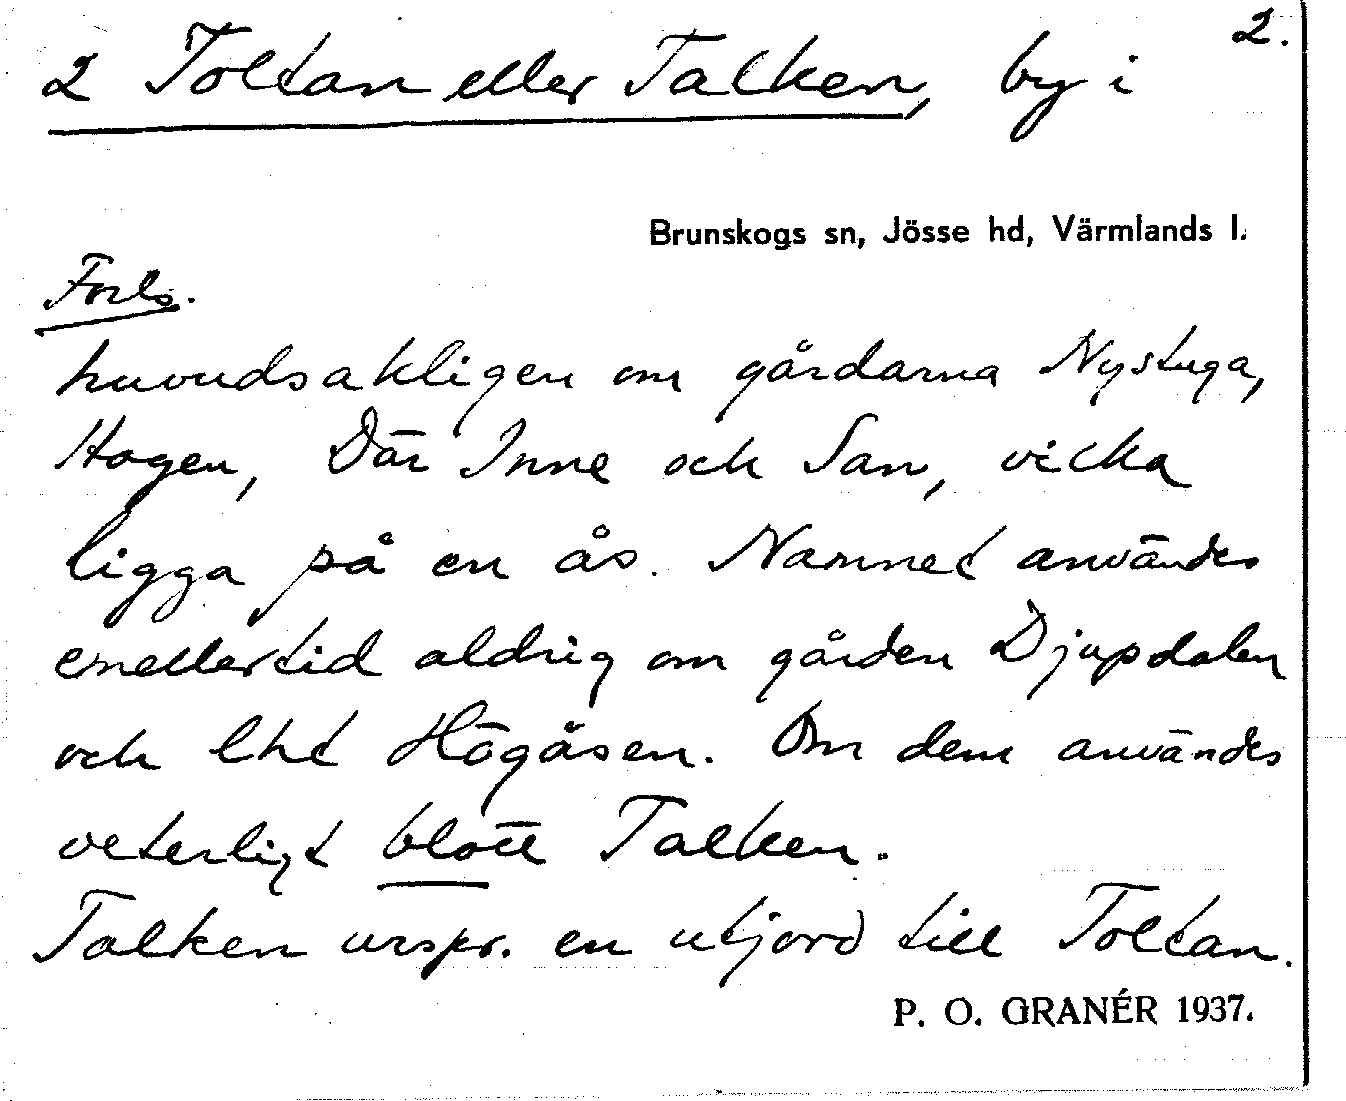 2.
2 Toltan eller Talken, by i
Brunskogs sn, Jösse hd, Värmlands l.
Forts.
huvudsakligen om gårdarna Nystuga,
Hagen, Där Inne och San, vilka
ligga på en ås. Namnet användes
emellertid aldrig om gården Djupdalen
och lht Högåsen. Om dem användes
veterligt blott Talken.
Talken urspr. en utjord till Toltan.
P. O. GRANÉR 1937.